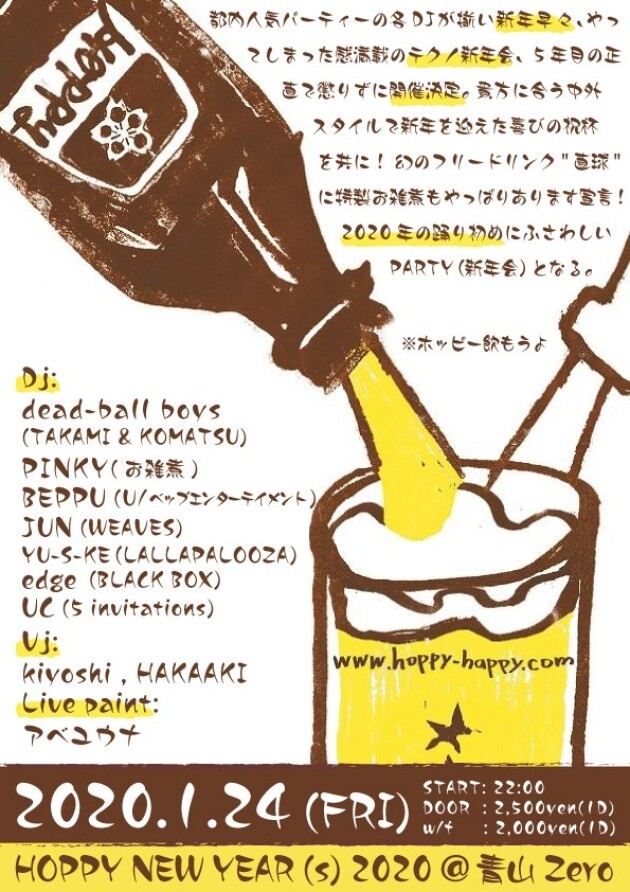 Hoppy
都内人気パーティーの各DJが揃い新年早々、やっ
てしまった感満載のテクノ新年会、5年目の正
直で懲りずに開催決定。貴方に合う中外
スタイルで新年を迎えた喜びの祝杯
を共に！幻のフリードリンク"直球"
に特製お雑煮もやっぱりあります宣言！
2020年の踊り初めにふさわしい
PARTY(新年会)となる。
※ホッピー飲もうよ
Dj:
dead-ball boys
(TAKAMI & KOMATSU)
PINKY(お雑煮)
BEPPU(U/ベップエンターテイメント)
JUN (WEAVES)
YU-S-KE(LALLAPALOOZA)
edge (BLACK BOX)
UC (5 invitations)
Vj:
kiyoshi , HAKAAKI
Live paint:
アベユウナ
www.hoppy-happy.com
2020.1.24 (FRI)
START: 22:00
DOOR : 2,500yen(1D)
w/f : 2,000yen(1D)
HOPPY NEW YEAR (s) 2020 @ 青山 Zero